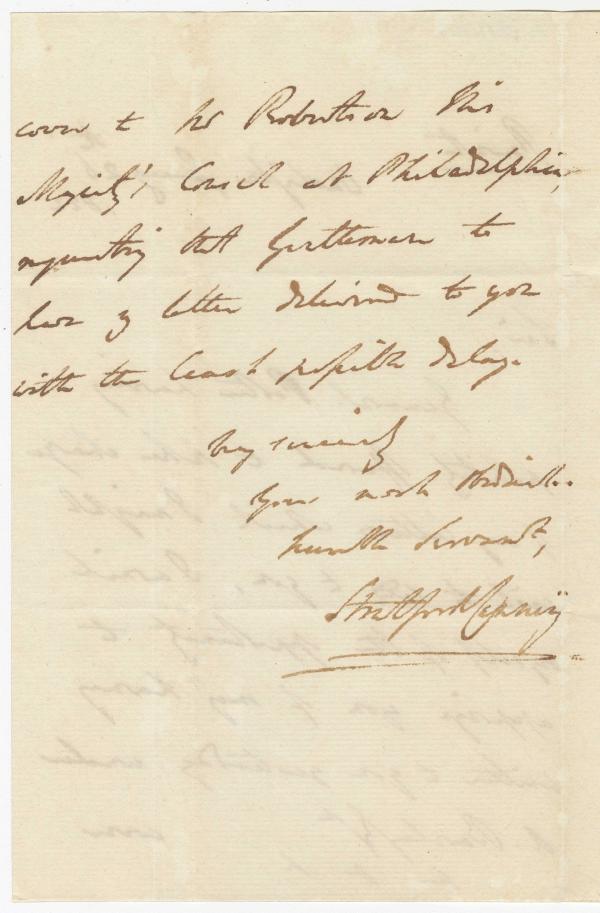 cover to Mr Robertson His
Majesty's Consul at Philadelphia,
requesting that Gentleman to
have yr letter delivered to you
with the least possible delay.
very sincerely
Your most Obedient
humble Servant,
Stratford Canning